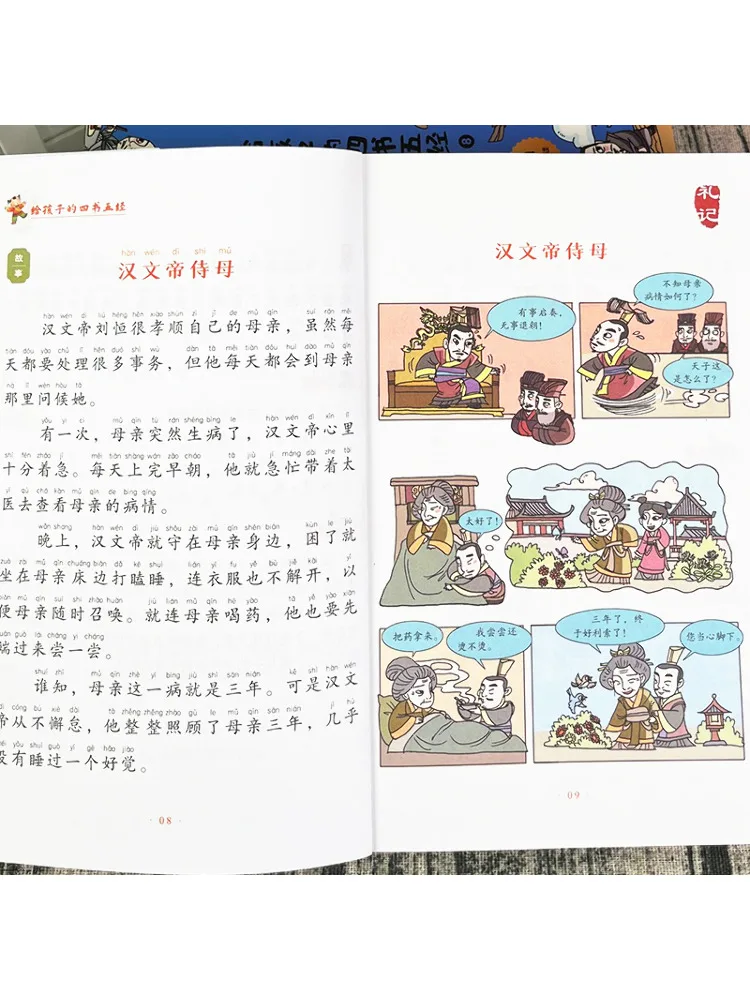 四书五经 8
给孩子的四书五经
故事
hàn wén dì shì mǔ
汉文帝侍母
hàn wén dì liú héng hěn xiào shùn zì jǐ de mǔ qīn suī rán měi
汉文帝刘恒很孝顺自己的母亲，虽然每
tiān dōu yào chǔ lǐ hěn duō shì wù dàn tā měi tiān dōu huì dào mǔ qīn
天都要处理很多事务，但他每天都会到母亲
nà lǐ wèn hòu tā
那里问候她。
yǒu yí cì mǔ qīn tū rán shēng bìng le hàn wén dì xīn lǐ
有一次，母亲突然生病了，汉文帝心里
shí fēn zháo jí měi tiān shàng wán zǎo cháo tā jiù jí máng dài zhe tài
十分着急。每天上完早朝，他就急忙带着太
yī qù chá kàn mǔ qīn de bìng qíng
医去查看母亲的病情。
wǎn shang hàn wén dì jiù shǒu zài mǔ qīn shēn biān kùn le jiù
晚上，汉文帝就守在母亲身边，困了就
zuò zài mǔ qīn chuáng biān dǎ kē shuì lián yī fu yě bù jiě kāi yǐ
坐在母亲床边打瞌睡，连衣服也不解开，以
biàn mǔ qīn suí shí zhào huàn jiù lián mǔ qīn hē yào tā yě yào xiān
便母亲随时召唤。就连母亲喝药，他也要先
duān guò lái cháng yì cháng
端过来尝一尝。
shuí zhī mǔ qīn zhè yí bìng jiù shì sān nián kě shì hàn wén
谁知，母亲这一病就是三年。可是汉文
dì cóng bú xiè dài tā zhěng zhěng zhào gù le mǔ qīn sān nián jī hū
帝从不懈怠，他整整照顾了母亲三年，几乎
méi yǒu shuì guò yí gè hǎo jiào
没有睡过一个好觉。
·08·
礼记
汉文帝侍母
有事启奏，
无事退朝！
不知母亲
病情如何了？
天子这
是怎么了？
太好了！
把药拿来。
我尝尝还
烫不烫。
三年了，终
于好利索了！
您当心脚下。
·09·